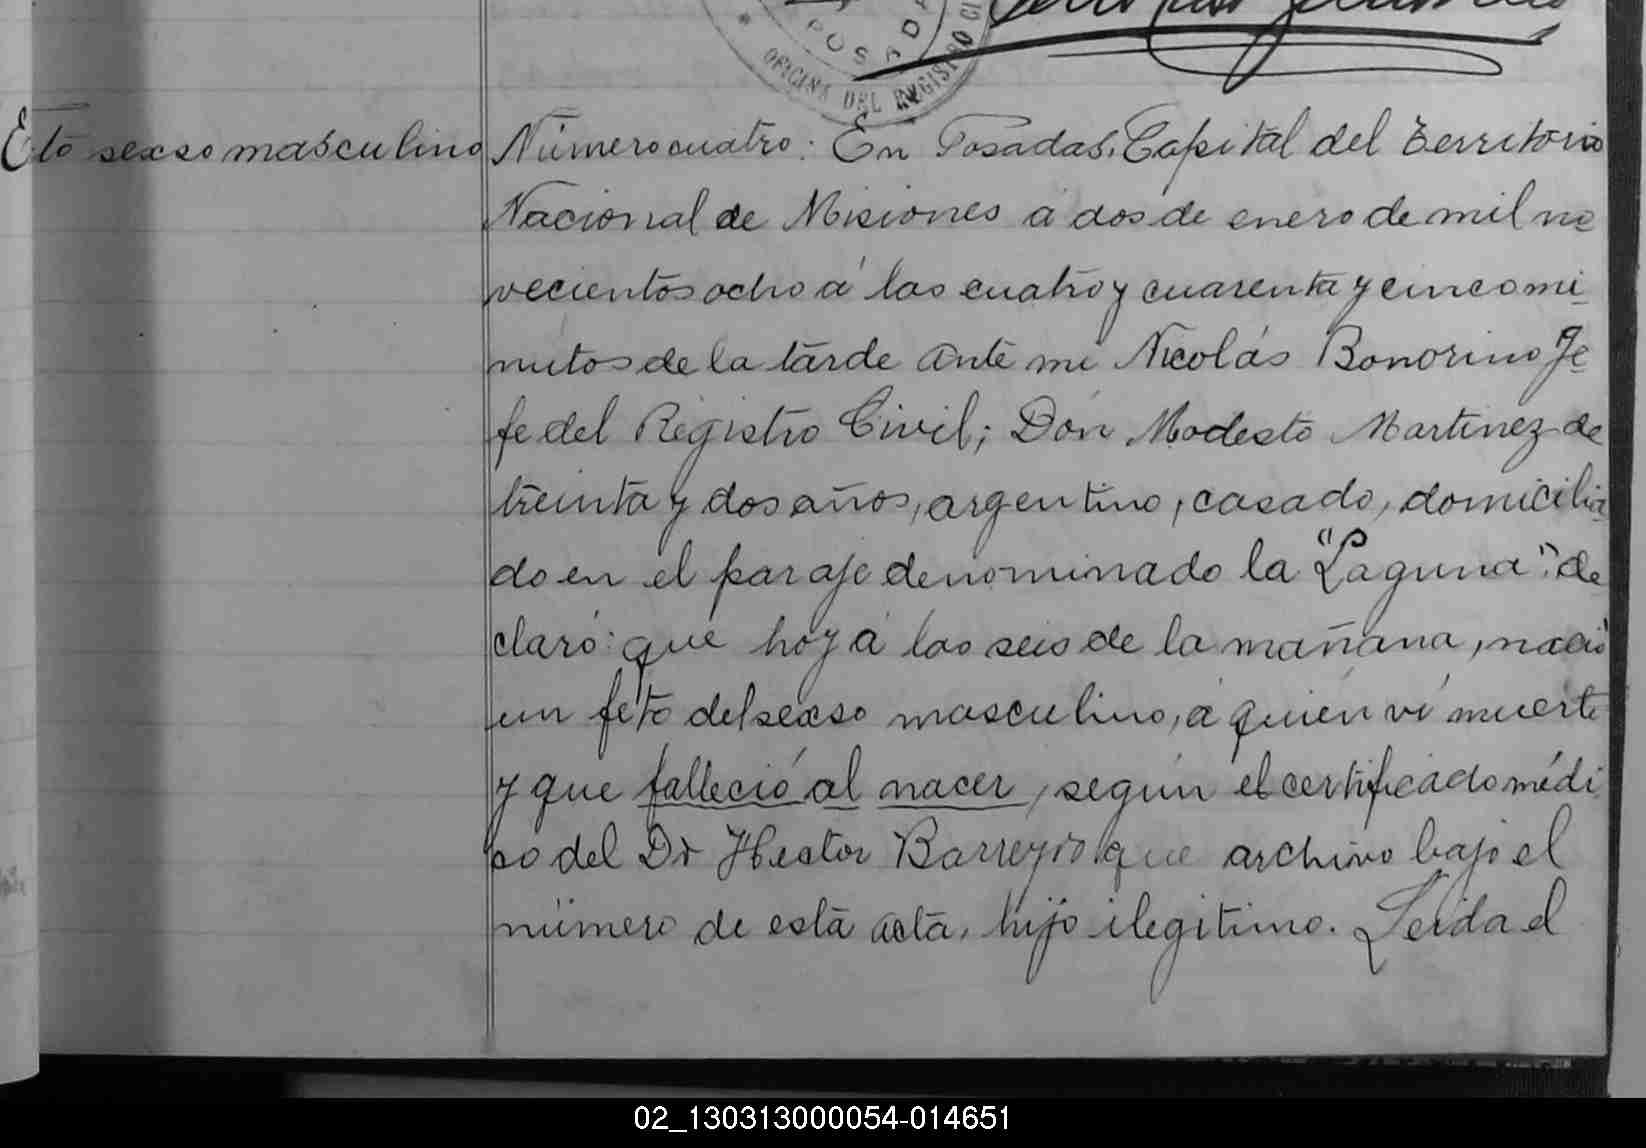 POSADA
OFICINA DEL REGISTRO CI
Eto sexso masculino
Número cuatro: En Posadas, Capital del Territorio
Nacional de Misiones a dos de enero de mil no
vecientos ocho á las cuatro y cuarenta y cinco mi
nutos de la tarde ante mi Nicolás Bonorino Je
fe del Registro Civil; Don Modesto Martinez de
treinta y dos años, argentino, casado, domicilia
do en el paraje denominado la "Laguna". de
claró: que hoy á las seis de la mañana, nació
un feto del sexso masculino, á quien ví muerto
y que falleció al nacer, según el certificado médi
co del Dr Hector Barreyro que archivo bajo el
número de esta acta, hijo ilegitimo. Leida el
02_130313000054-014651